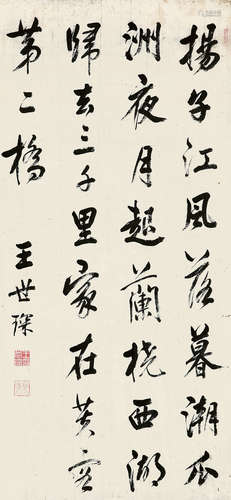 揚子江風落暮潮瓜
洲夜月起蘭橈西湖
歸去三千里家在芙蓉
第二橋
王世琛